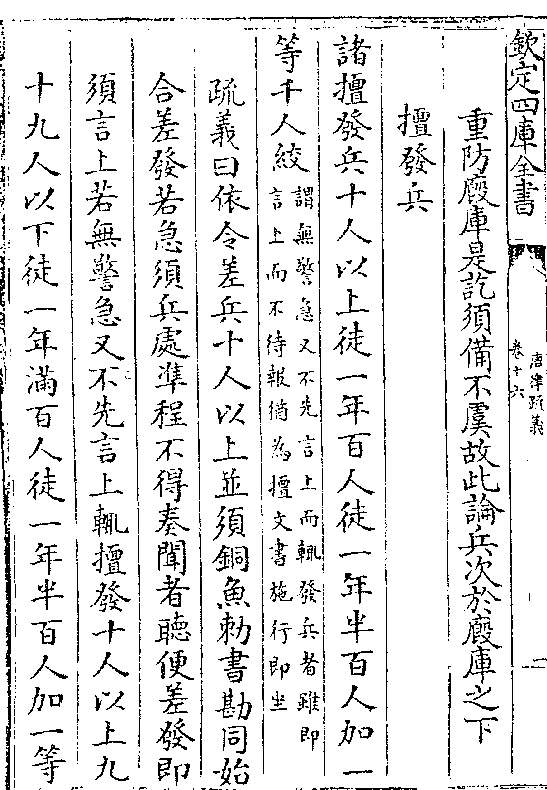 欽定四庫全書
唐律疏義
卷十六
一
重防廄庫是訖須備不虞故此論兵次於廄庫之下
擅發兵
諸擅發兵十人以上徒一年百人徒一年半百人加一
等千人絞
謂無警急又不先言上而輒發兵者雖即
言上而不待報猶為擅文書施行即坐
疏義曰依令差兵十人以上並須銅魚勅書勘同始
合差發若急須兵處準程不得奏聞者聽便差發即
須言上若無警急又不先言上輒擅發十人以上九
十九人以下徒一年滿百人徒一年半百人加一等